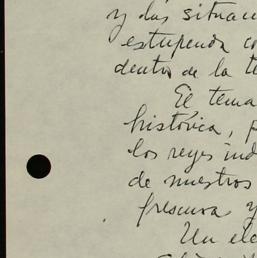 y las situac
estupenda co
dentro de la te
El tema
histórica, p
los reyes ind
de nuestros
frescura y
Un ele